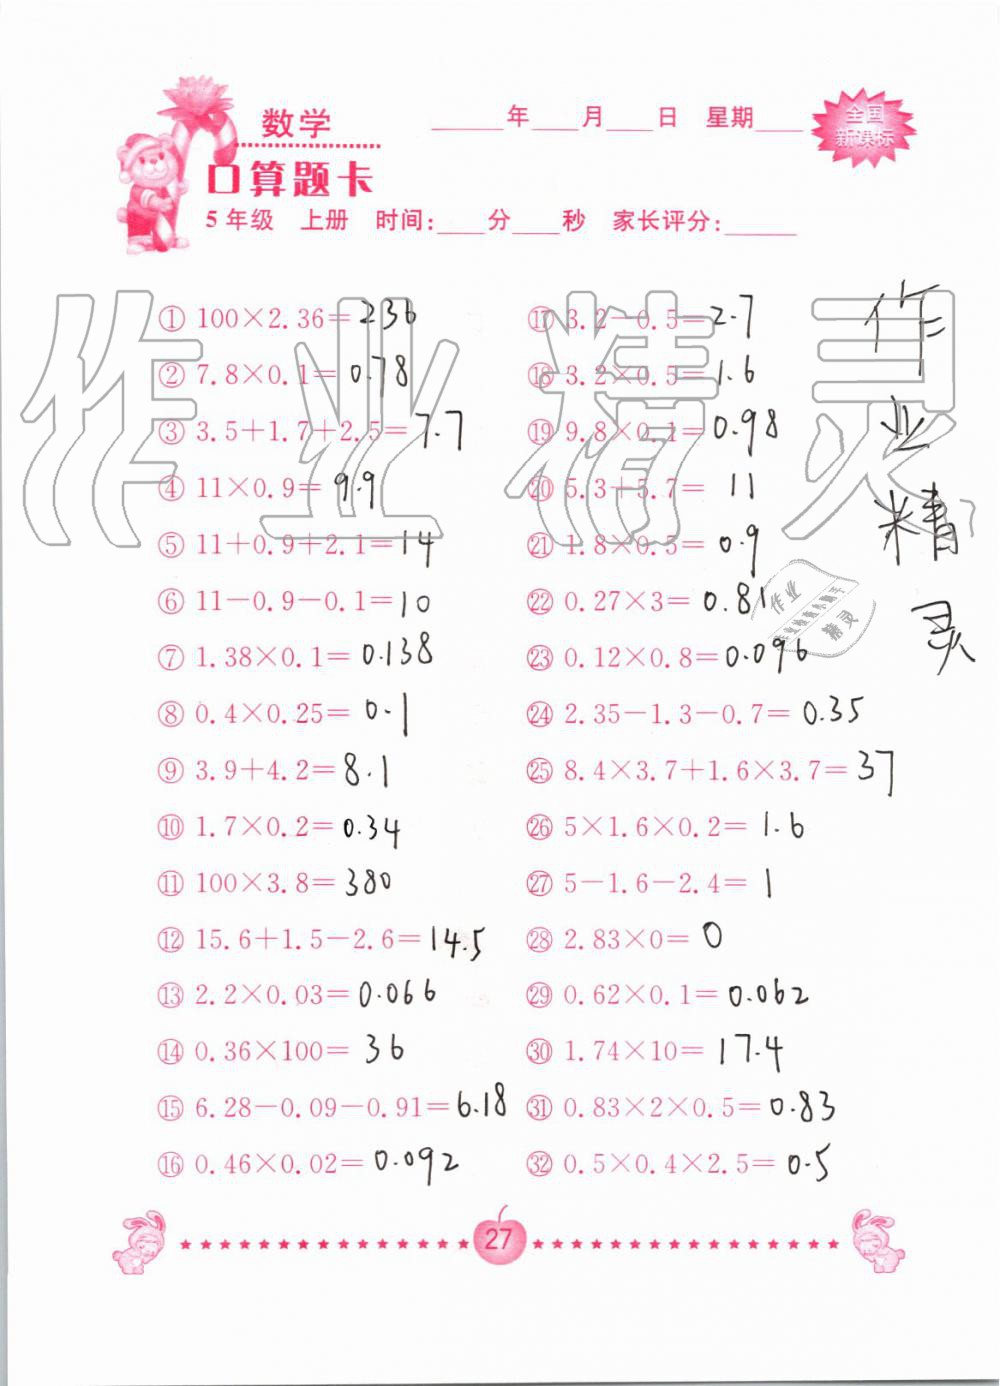 数学
口算题卡
年 月 日 星期
全国
新课标
5年级 上册 时间: 分 秒 家长评分:
① 100×2.36=236
② 7.8×0.1=0.78
③ 3.5+1.7+2.5=7.7
④ 11×0.9=9.9
⑤ 11+0.9+2.1=14
⑥ 11-0.9-0.1=10
⑦ 1.38×0.1=0.138
⑧ 0.4×0.25=0.1
⑨ 3.9+4.2=8.1
⑩ 1.7×0.2=0.34
⑪ 100×3.8=380
⑫ 15.6+1.5-2.6=14.5
⑬ 2.2×0.03=0.066
⑭ 0.36×100=36
⑮ 6.28-0.09-0.91=6.18
⑯ 0.46×0.02=0.092
⑰ 3.2-0.5=2.7
⑱ 3.2×0.5=1.6
⑲ 9.8×0.1=0.98
⑳ 5.3+5.7=11
㉑ 1.8×0.5=0.9
㉒ 0.27×3=0.81
㉓ 0.12×0.8=0.096
㉔ 2.35-1.3-0.7=0.35
㉕ 8.4×3.7+1.6×3.7=37
㉖ 5×1.6×0.2=1.6
㉗ 5-1.6-2.4=1
㉘ 2.83×0=0
㉙ 0.62×0.1=0.062
㉚ 1.74×10=17.4
㉛ 0.83×2×0.5=0.83
㉜ 0.5×0.4×2.5=0.5
作
业
精
灵
作业精灵
作业
精灵
27